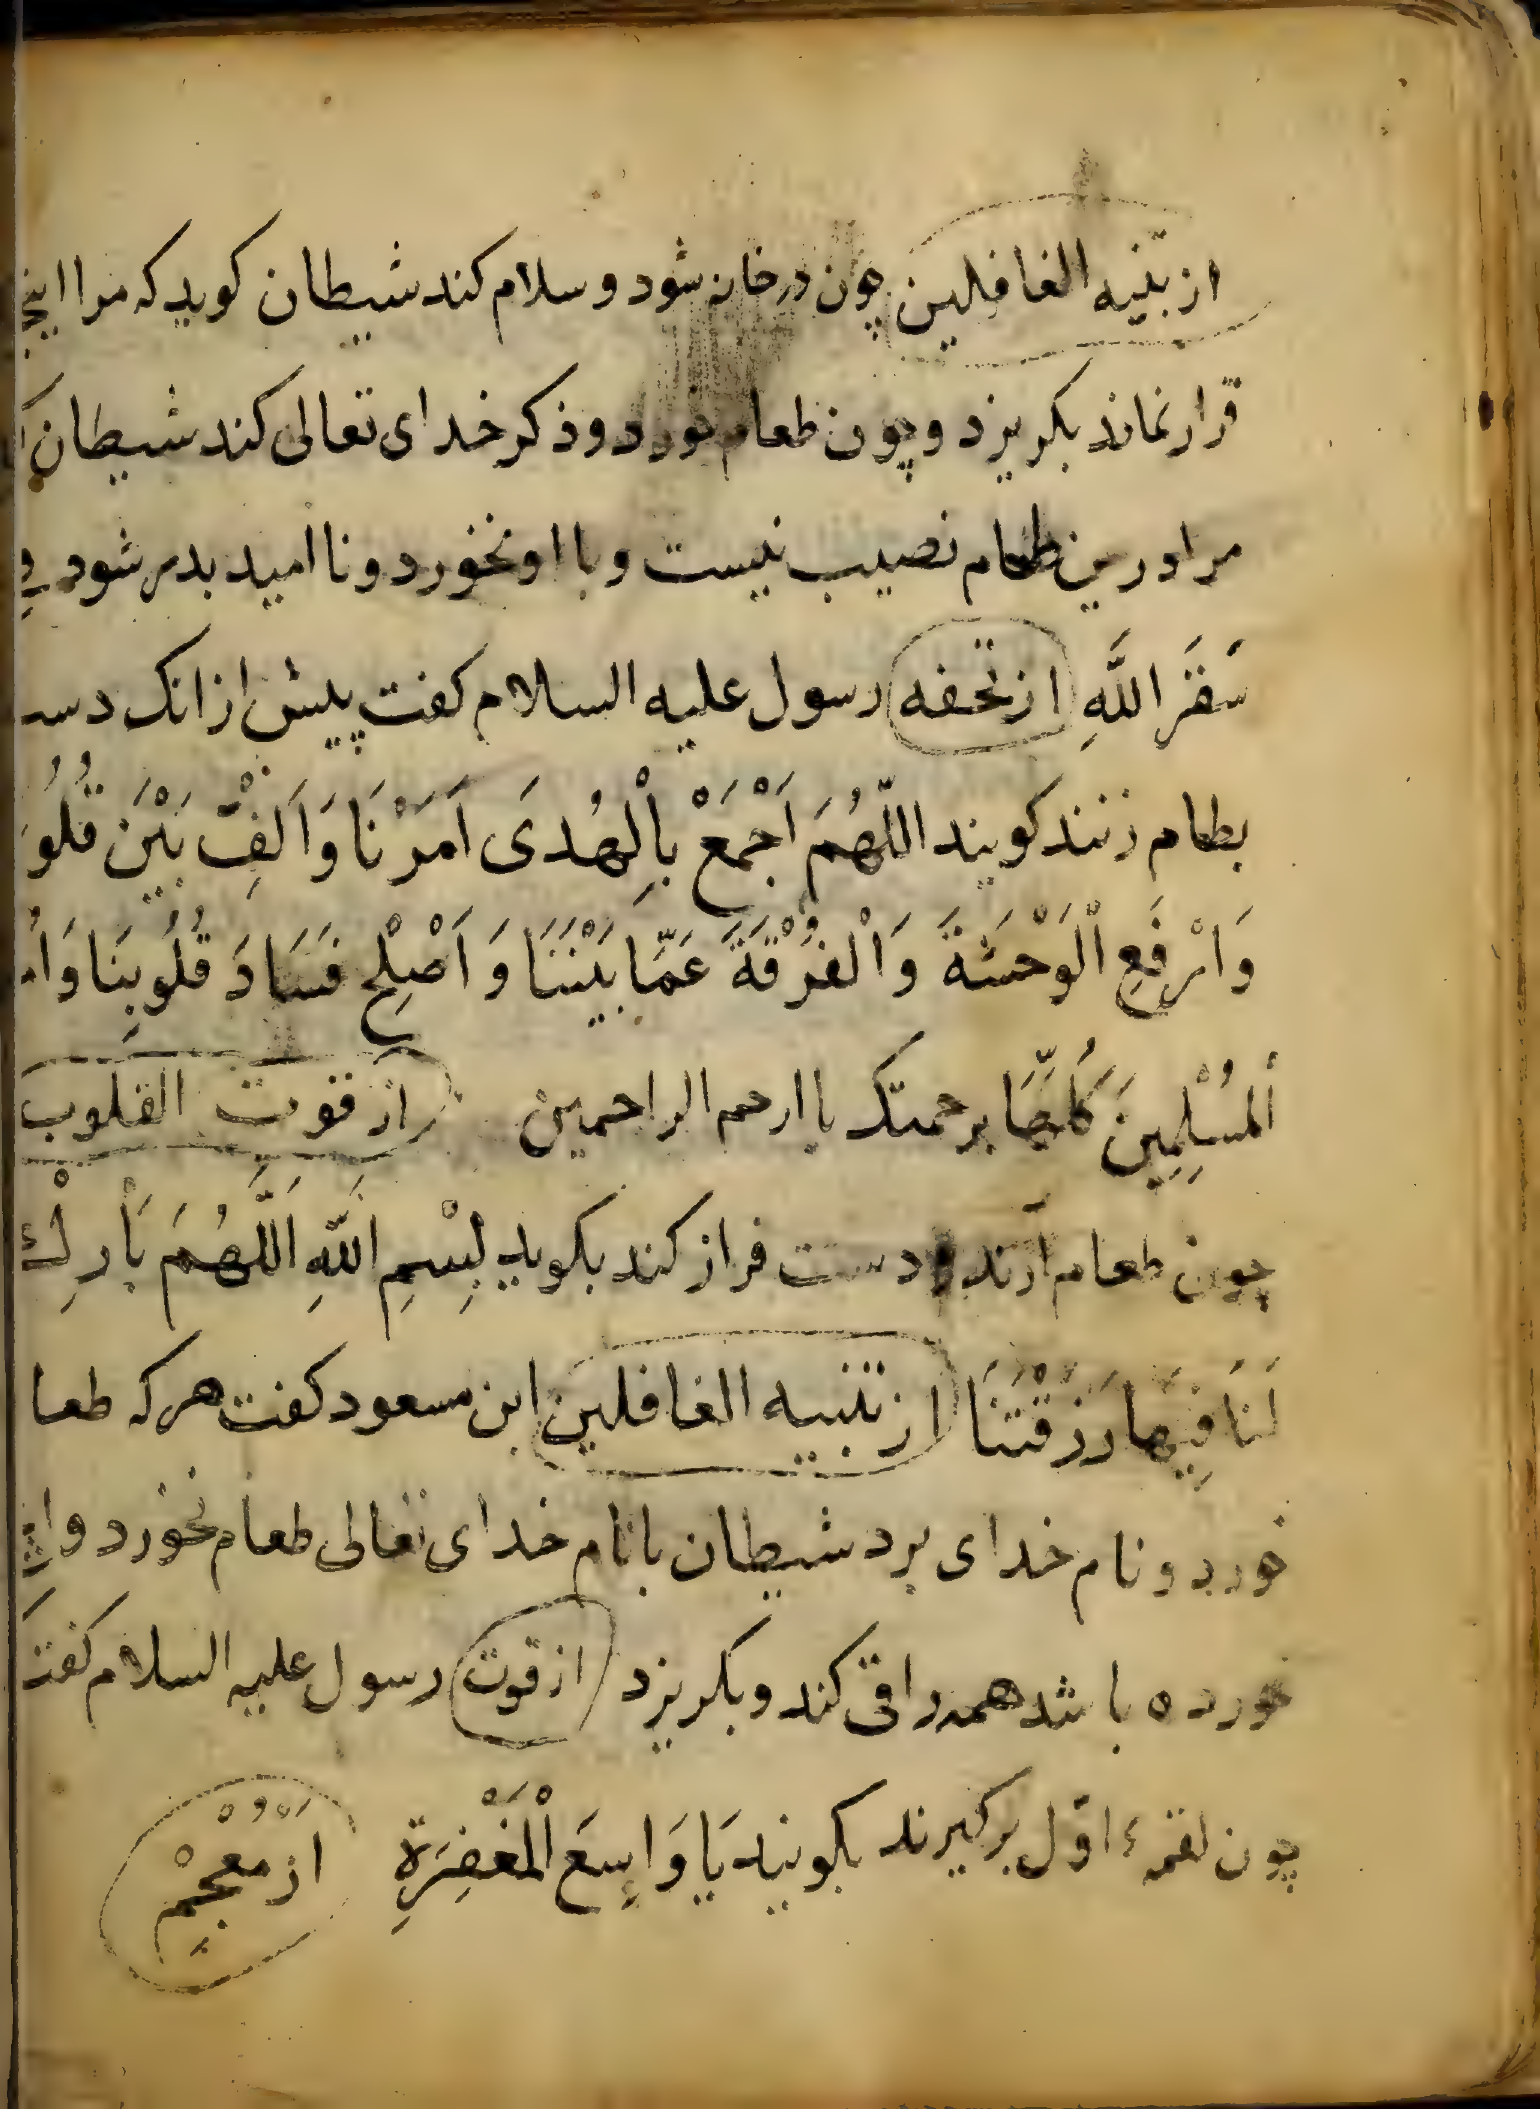 از تنبیه الغافلین چون در خانه شود و سلام کند شیطان کوید که مرا اینجا
قرار نماند بکریزد و چون طعام خورد و ذکر خدای تعالی کند شیطان
مرا درین طعام نصیب نیست و با او نخورد و ناامید بدر شود فی
سَقَرَ اللَّهِ از تحفه رسول علیه السلام کفت پیش از انک دست
بطعام زنند کویند اللّهُمَ اَجْمَعْ بِالْهُدَی اَمَرْنَا وَ اَلِفْ بَيْنَ قُلُو
وَ ارْفَعِ الْوَحْشَةَ وَ الْفُرْقَةَ عَمَّا بَيْنَنَا وَ اَصْلِحْ فَسَادَ قُلُوبِنَا وَ اُ
اَلمُسْلِمِينَ كُلِّهَا برحمتک یا ارحم الراحمین از قوت القلوب
چون طعام آرند و دست فراز کند بکوید بِسْمِ اللّهِ اَللَّهُمَ بَارِكْ
لَنَا فِيمَا رَزَقْتَنَا از تنبیه الغافلین ابن مسعود کفت هر که طعا
خورد و نام خدای برد شیطان با نام خدای تعالی طعام نخورد و انچ
خورده باشد همه را قی کند و بکریزد از قوت رسول علیه السلام کفت
چون لقمهٔ اوّل برکیرند بکویند یَا وَاسِعَ الْمَغْفِرَةِ از مُعْجَمْ